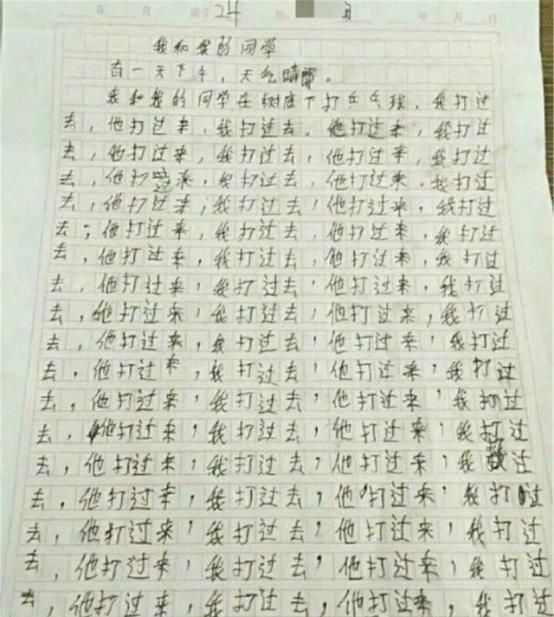 24 3
我和我的同学
有一天下午，天气晴朗。
我和我的同学在树底下打乒乓球，我打过
去，他打过来，我打过去，他打过来，我打过
去，他打过来，我打过去，他打过来，我打过
去，他打过来，我打过去，他打过来，我打过
去，他打过来，我打过去，他打过来，我打过
去，他打过来，我打过去，他打过来，我打过
去，他打过来，我打过去，他打过来，我打过
去，他打过来，我打过去，他打过来，我打过
去，他打过来，我打过去，他打过来，我打过
去，他打过来，我打过去，他打过来，我打过
去，他打过来，我打过去，他打过来，我打过
去，他打过来，我打过去，他打过来，我打过
去，他打过来，我打过去，他打过来，我打过
去，他打过来，我打过去，他打过来，我过
去，他打过来，我打过去，他打过来，我打过
去，他打过来，我打过去，他打过来，我打过
去，他打过来，我打过去，他打过来，我打过
去，他打过来，我打过去，他打过来，我打过